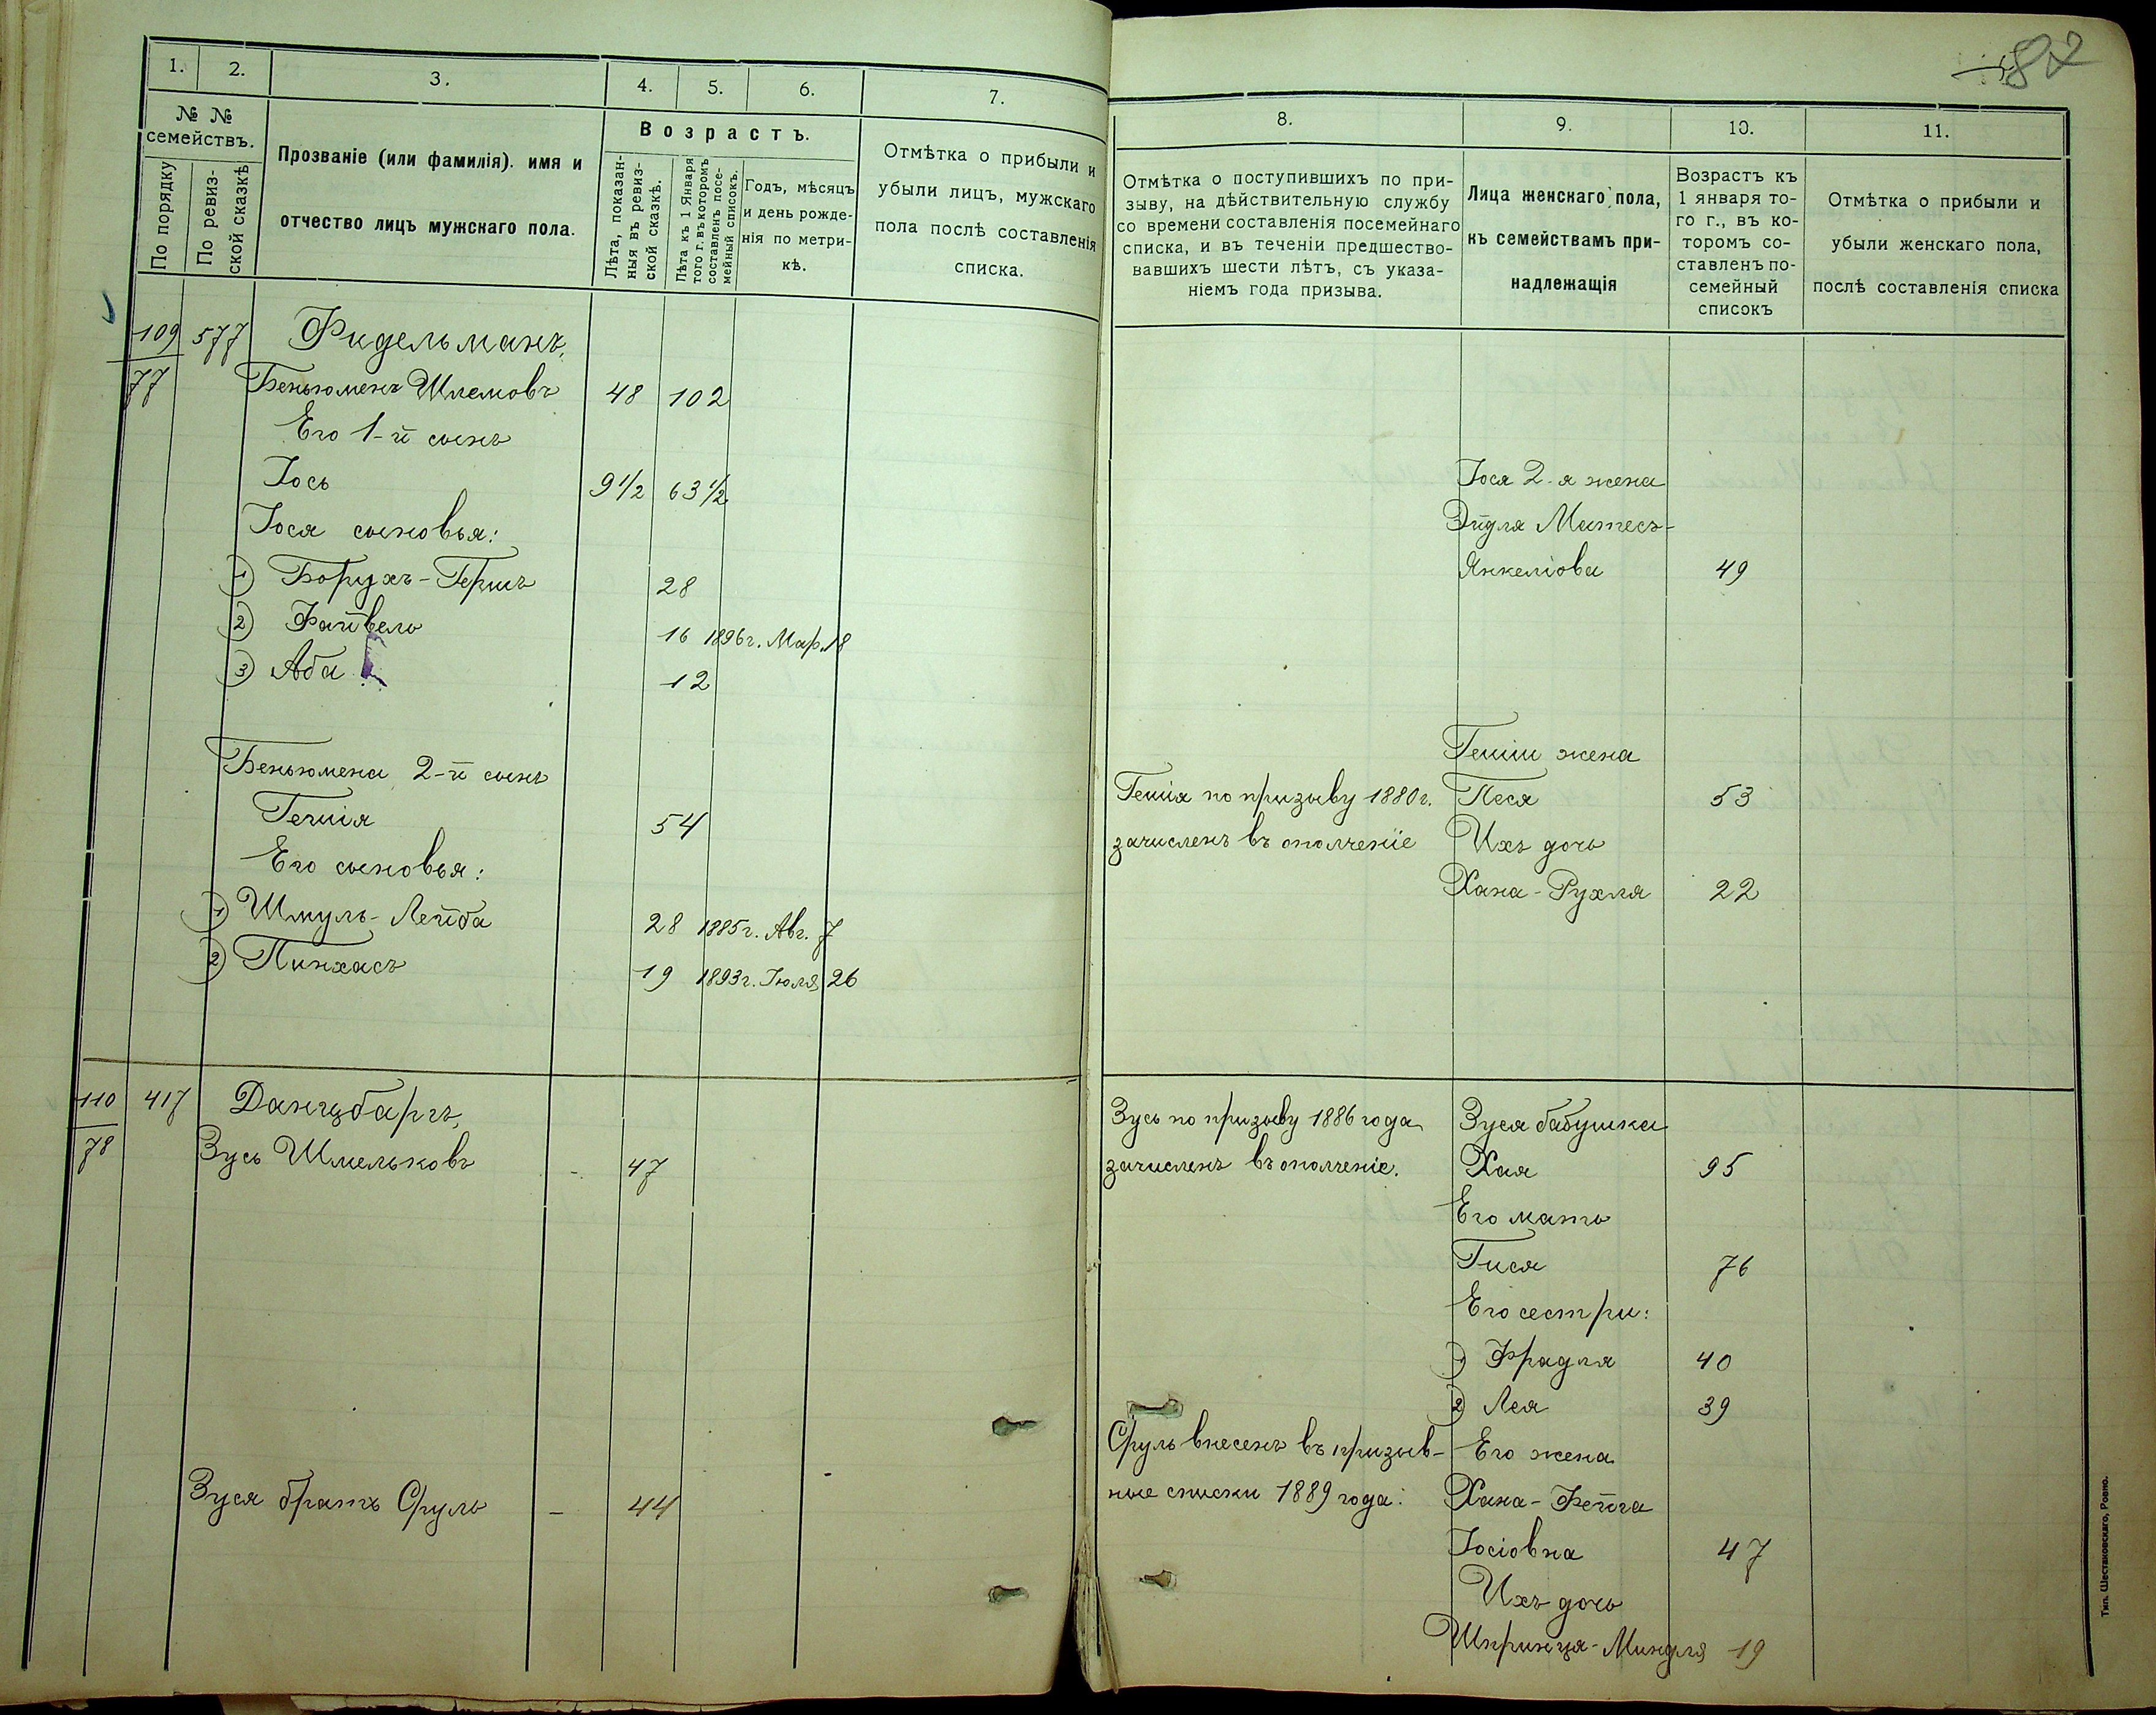 1.
2.
3.
4.
5.
6.
7.
№ №
семействъ.
По порядку
По ревиз-
ской сказкѣ
Прозваніе (или фамилія). имя и
отчество лицъ мужскаго пола.
Возрастъ.
Лѣта, показан-
ныя въ ревиз-
ской сказкѣ.
Лѣта къ 1 Января
того г. въ которомъ
составленъ посе-
мейный списокъ.
Годъ, мѣсяцъ
и день рожде-
нія по метри-
кѣ.
Отмѣтка о прибыли и
убыли лицъ, мужскаго
пола послѣ составленія
списка.
109 577 Фидельманъ,
77 Беньюменъ Шлемовъ 48 102
Его 1-й сынъ
Іось 9 1/2 63 1/2
Іося сыновья:
1) Борухъ-Гершъ 28
2) Файвель 16 1896г. Мар. 18
3) Аба 12
Беньюмена 2-й сынъ
Гешія 54
Его сыновья:
1) Шмуль-Лейба 28 1885г. Авг. 7
2) Пинхасъ 19 1893г. Іюля 26
110 417 Данцбаргъ,
78 Зусь Шмельковъ - 47
Зуся братъ Сруль - 44
82
8.
9.
10.
11.
Отмѣтка о поступившихъ по при-
зыву, на дѣйствительную службу
со времени составленія посемейнаго
списка, и въ теченіи предшество-
вавшихъ шести лѣтъ, съ указа-
ніемъ года призыва.
Лица женскаго пола,
къ семействамъ при-
надлежащія
Возрастъ къ
1 января то-
го г., въ ко-
торомъ со-
ставленъ по-
семейный
списокъ
Отмѣтка о прибыли и
убыли женскаго пола,
послѣ составленія списка
Іося 2-я жена
Эйдля Митесъ-
Янкеліова 49
Гешіи жена
Гешія по призыву 1880г. Песя 53
зачисленъ въ ополченіе Ихъ дочь
Хана-Рухля 22
Зусь по призыву 1886 года Зуся бабушка
зачисленъ въ ополченіе. Хая 95
Его мать
Гися 76
Его сестри:
1) Фрадля 40
2) Лея 39
Сруль внесенъ въ призыв- Его жена
ные списки 1889 года. Хана-Фейга
Іосіовна 47
Ихъ дочь
Шпринца-Миндля 19
Тип. Шестаковскаго, Ровно.